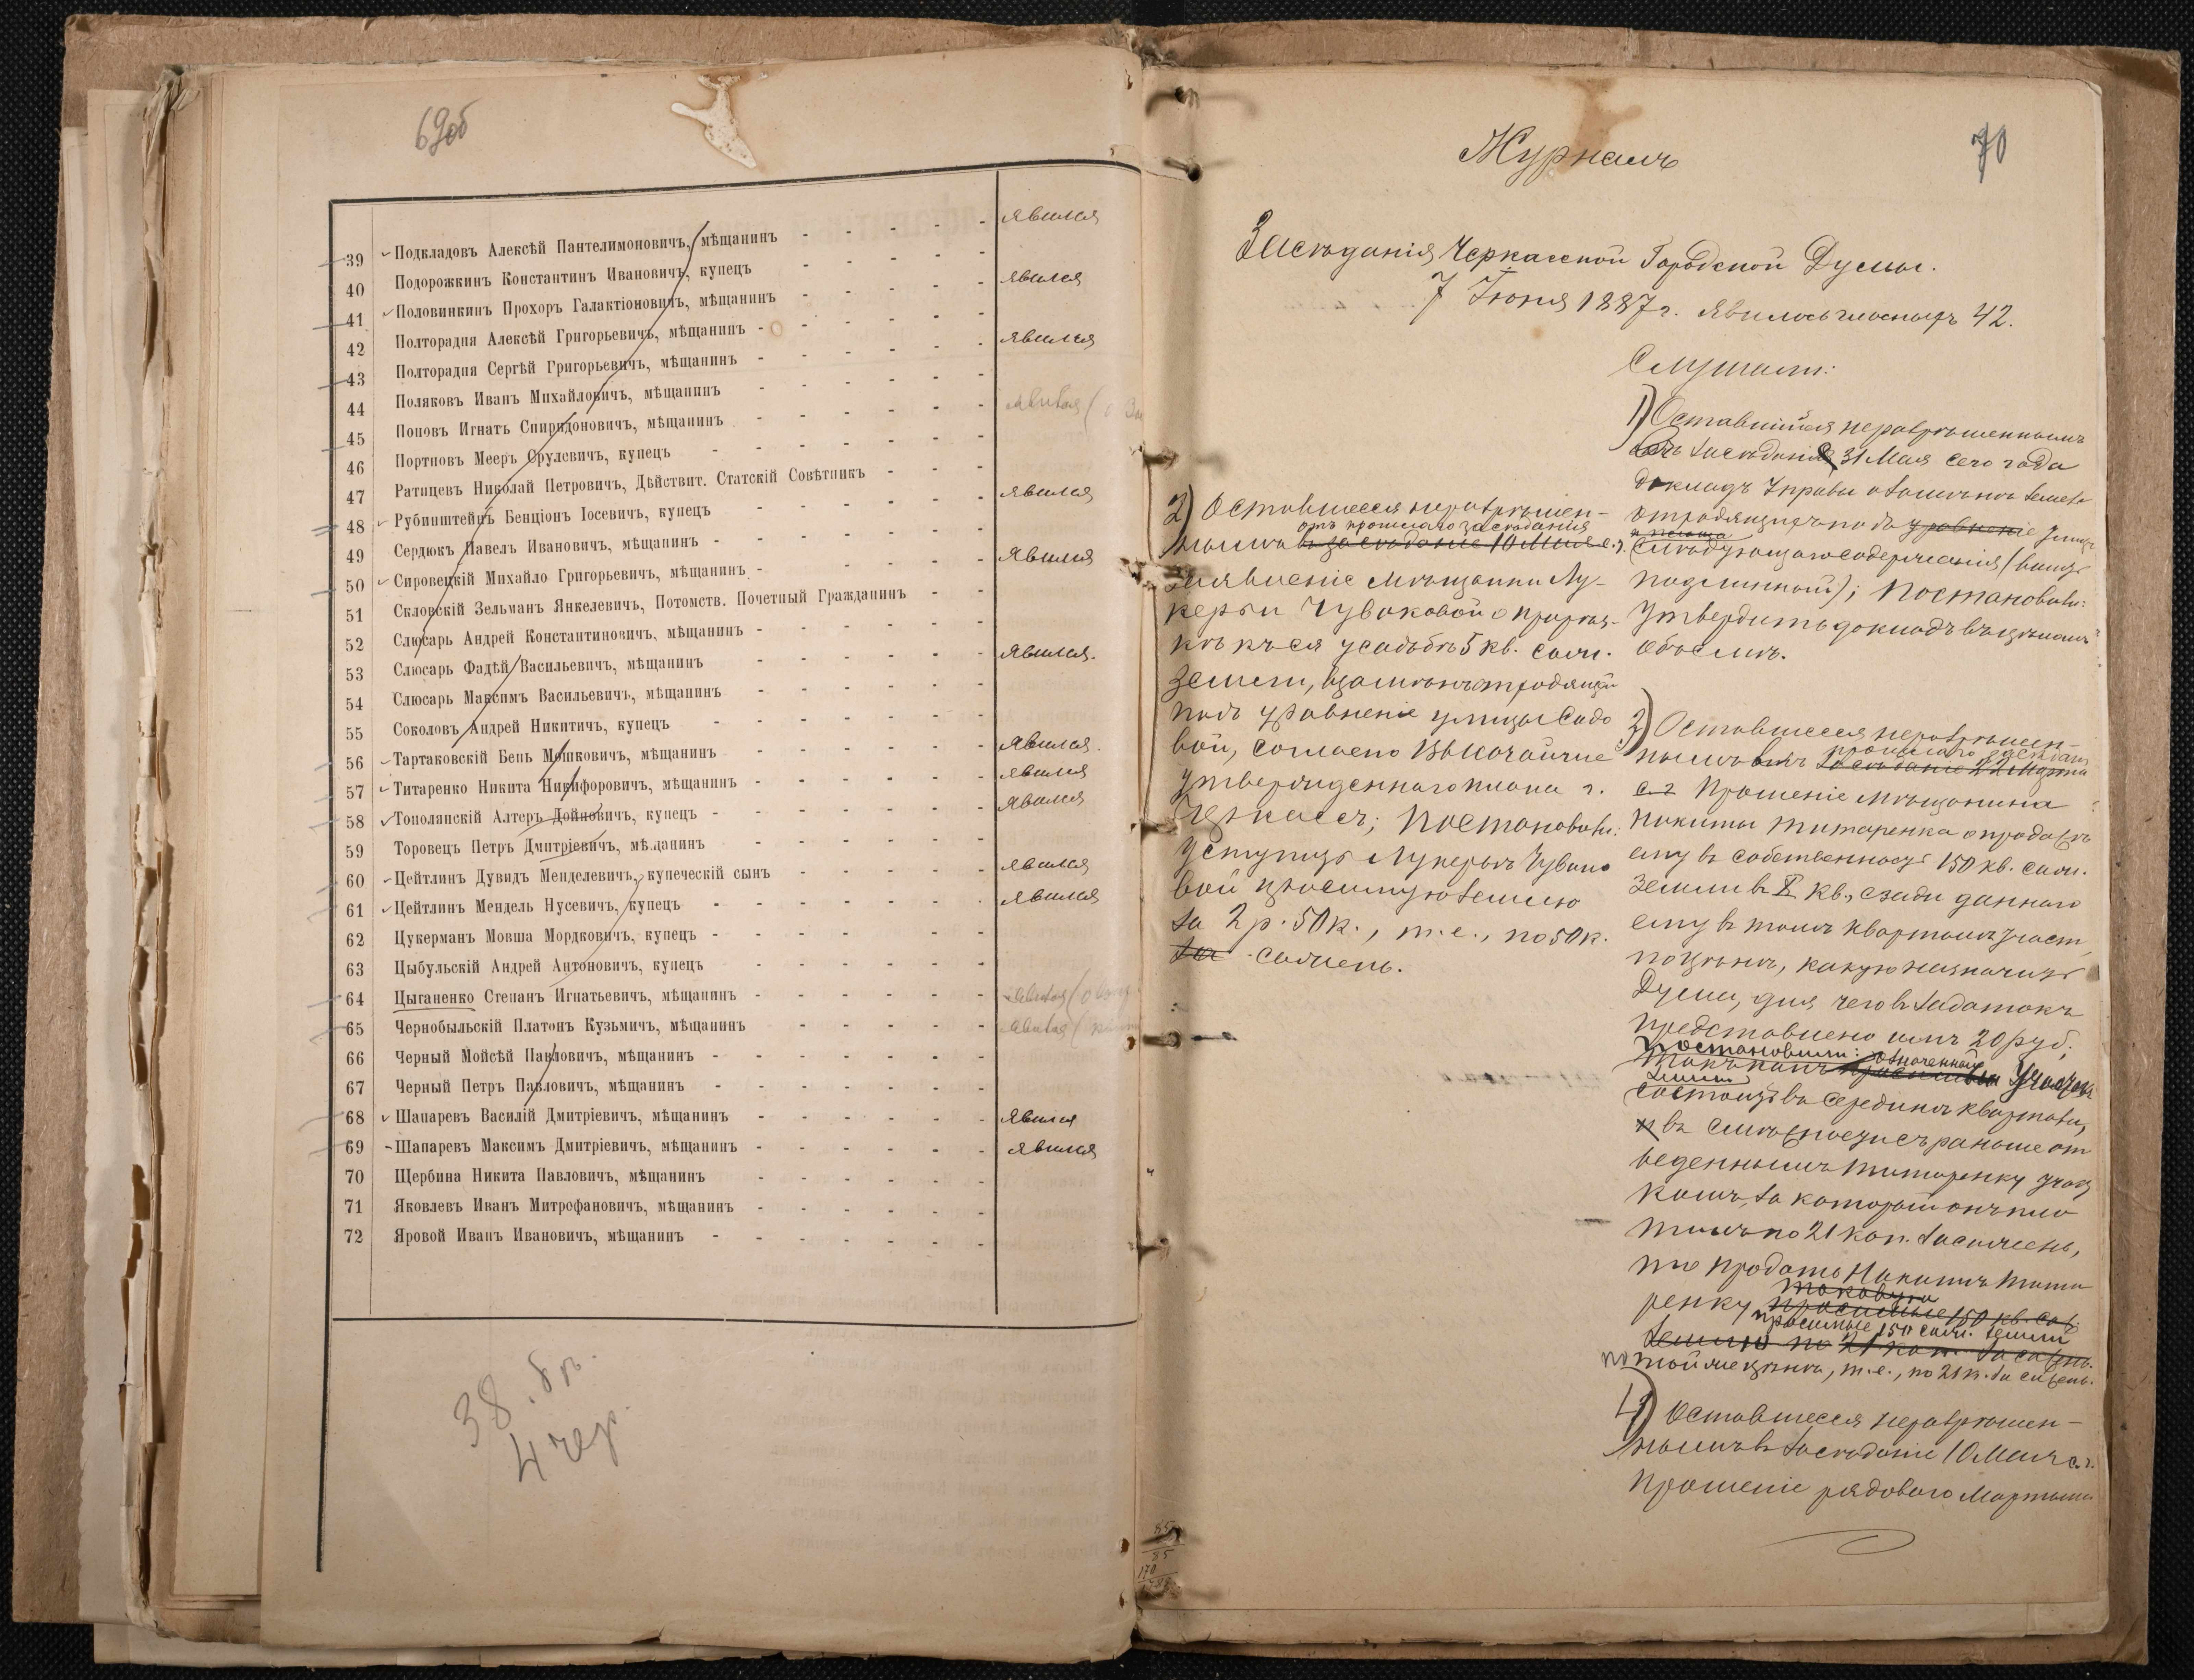 69об
39 Подкладовъ Алексѣй Пантелимоновичъ, мѣщанинъ - - - - - явился
40 Подорожкинъ Константинъ Ивановичъ, купецъ - - - - -
41 Половинкинъ Прохоръ Галактіоновичъ, мѣщанинъ - - - - - явился
42 Полторацня Алексѣй Григорьевичъ, мѣщанинъ - - - - - -
43 Полторацня Сергѣй Григорьевичъ, мѣщанинъ - - - - - - явился
44 Поляковъ Иванъ Михайловичъ, мѣщанинъ - - - - - -
45 Поповъ Игнатъ Спиридоновичъ, мѣщанинъ - - - - - - явился
46 Портновъ Мееръ Срулевичъ, купецъ - - - - - - -
47 Ратицевъ Николай Петровичъ, Дѣйствит. Статскій Совѣтникъ - - -
48 Рубинштейнъ Бенціонъ Іосевичъ, купецъ - - - - - - явился
49 Сердюкъ Павелъ Ивановичъ, мѣщанинъ - - - - - - -
50 Сировецкій Михайло Григорьевичъ, мѣщанинъ - - - - - явился
51 Скловскій Зельманъ Янкелевичъ, Потомств. Почетный Гражданинъ - -
52 Слюсарь Андрей Константиновичъ, мѣщанинъ - - - - - -
53 Слюсарь Фадѣй Васильевичъ, мѣщанинъ - - - - - - явился.
54 Слюсарь Максимъ Васильевичъ, мѣщанинъ - - - - - -
55 Соколовъ Андрей Никитичъ, купецъ - - - - - - -
56 Тартаковскій Бень Мошковичъ, мѣщанинъ - - - - - - явился.
57 Титаренко Никита Никифоровичъ, мѣщанинъ - - - - - - явился
58 Тополянскій Алтеръ Дойновичъ, купецъ - - - - - - - явился
59 Торовецъ Петръ Дмитріевичъ, мѣщанинъ - - - - - -
60 Цейтлинъ Дувидъ Менделевичъ, купеческій сынъ - - - - - явился
61 Цейтлинъ Мендель Нусевичъ, купецъ - - - - - - - явился
62 Цукерманъ Мовша Мордковичъ, купецъ - - - - - - -
63 Цыбульскій Андрей Антоновичъ, купецъ - - - - - -
64 Цыганенко Степанъ Игнатьевичъ, мѣщанинъ - - - - - - явился
65 Чернобыльскій Платонъ Кузьмичъ, мѣщанинъ - - - - - явился
66 Черный Мойсѣй Павловичъ, мѣщанинъ - - - - - - -
67 Черный Петръ Павловичъ, мѣщанинъ - - - - - - -
68 Шапаревъ Василій Дмитріевичъ, мѣщанинъ - - - - - - явился
69 Шапаревъ Максимъ Дмитріевичъ, мѣщанинъ - - - - - - явился
70 Щербина Никита Павловичъ, мѣщанинъ - - - - - -
71 Яковлевъ Иванъ Митрофановичъ, мѣщанинъ - - - - - -
72 Яровой Иванъ Ивановичъ, мѣщанинъ - - - - - - -
38
4 чер.
70
Журналъ
Засѣданія Черкасской Городской Думы.
7 Іюня 1887 г. Явилось гласныхъ 42.
Слушали:
1) Оставшійся неразрѣшеннымъ
засѣданія 31 Мая сего года
докладъ Управы о взамѣнъ земли
отходящихъ подъ уравненіе улицъ
слѣдующаго содержанія (впиш.
подлинный); Постановили:
Утвердить докладъ въ цѣломъ
объемѣ.
2) Оставшееся неразрѣшен-
отъ прошлаго засѣданія
нымъ въ засѣданіе 10 Мая с. г.
заявленіе мѣщанки Лу-
керьи Чуваковой о прирѣз-
кѣ къ ея усадьбѣ 5 кв. саж.
земли, взамѣнъ отходящей
подъ уравненіе улицы Садо
вой, согласно Высочайше
утвержденнаго плана г.
Черкассъ; Постановили:
Уступить Лукерьѣ Чувако
вой просимую землю
за 2 р. 50 к., т. е., по 50 к.
за сажень.
3) Оставшееся неразрѣшен-
прошлаго засѣданія
нымъ въ засѣданіе 22 Марта
с. г. Прошеніе мѣщанина
Никиты Титаренка о продажѣ
ему въ собственность 150 кв. саж.
земли въ X кв., сзади даннаго
ему въ томъ кварталѣ участ.
по цѣнѣ, какую назначитъ
Дума, для чего въ задатокъ
представлено имъ 20 руб.;
Постановили: означенный
Такъ какъ участокъ
земли
состоитъ въ серединѣ квартала,
и въ смежности съ раньше от
веденнымъ Титаренку участ
комъ, за который онъ пла
тилъ по 21 коп. за сажень,
то продать Никитѣ Тита
таковую
ренку просимые 150 кв. саж.
просимые 150 саж. земли
землю по 21 коп. за сажень.
по той же цѣнѣ, т. е., по 21 к. за сажень.
4) Оставшееся неразрѣшен-
нымъ въ засѣданіе 10 Мая с. г.
Прошеніе рядового Мартына